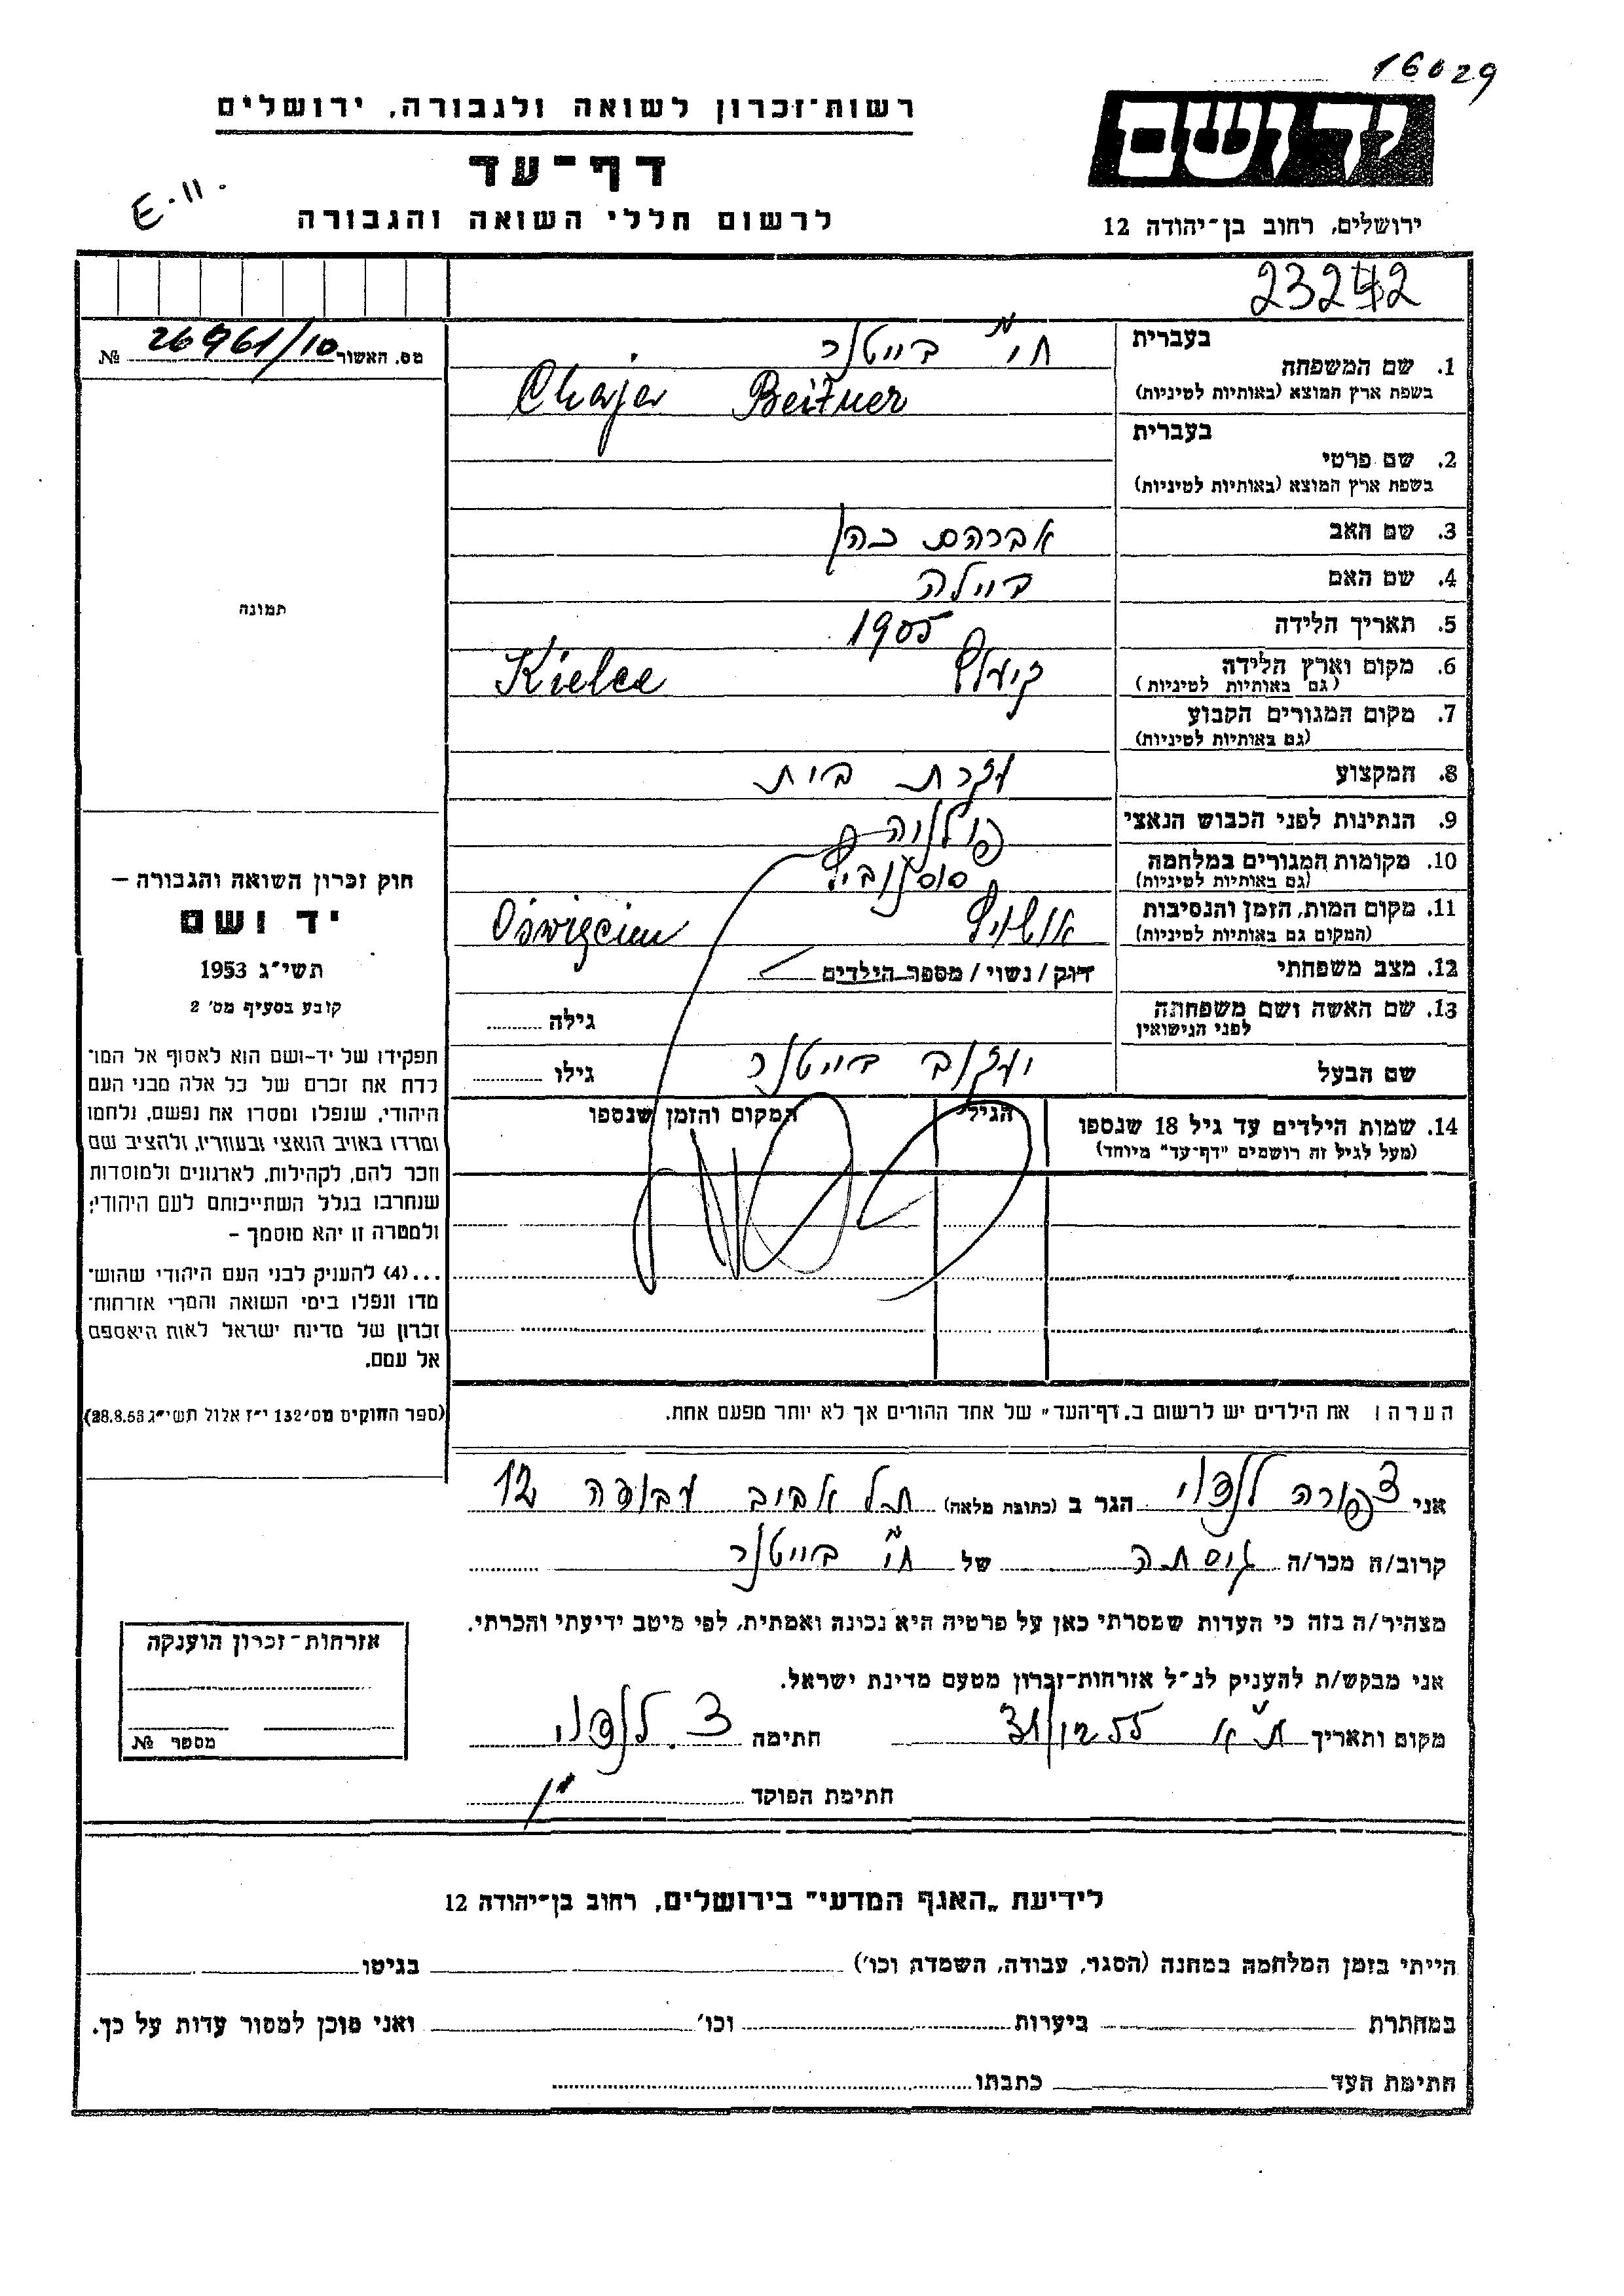 16029
רשות-זכרון לשואה ולגבורה, ירושלים
יד ושם
דף-עד
E-11.
לרשום חללי השואה והגבורה
ירושלים, רחוב בן-יהודה 12
23242
מס. האשור 26961/10 №
בעברית
1. שם המשפחה
חי' בייטנר
בשפת ארץ המוצא (באותיות לטיניות)
Chaja Beitner
בעברית
2. שם פרטי
בשפת ארץ המוצא (באותיות לטיניות)
3. שם האב אברהם כהן
4. שם האם ביילה
5. תאריך הלידה 1905
6. מקום וארץ הלידה קיעלץ Kielce
(גם באותיות לטיניות)
7. מקום המגורים הקבוע
(גם באותיות לטיניות)
8. המקצוע עקרת בית
9. הנתינות לפני הכבוש הנאצי פולניה
10. מקומות המגורים במלחמה סוסנוביץ
(גם באותיות לטיניות)
11. מקום המות, הזמן והנסיבות אושויץ Oświęcim
(המקום גם באותיות לטיניות)
12. מצב משפחתי רוק/נשוי/מספר הילדים
13. שם האשה ושם משפחתה
לפני הנישואין
גילה
שם הבעל יעקב בייטנר גילו
14. שמות הילדים עד גיל 18 שנספו
(מעל לגיל זה רושמים "דף-עד" מיוחד)
הגיל
המקום והזמן שנספו
תמונה
חוק זכרון השואה והגבורה –
יד ושם
תשי"ג 1953
קובע בסעיף מס' 2
תפקידו של יד-ושם הוא לאסוף אל המו-
לדת את זכרם של כל אלה מבני העם
היהודי, שנפלו ומסרו את נפשם, נלחמו
ומרדו באויב הנאצי ובעוזריו, ולהציב שם
וזכר להם, לקהילות, לארגונים ולמוסדות
שנחרבו בגלל השתייכותם לעם היהודי;
ולמטרה זו יהא מוסמך –
...(4) להעניק לבני העם היהודי שהוש-
מדו ונפלו בימי השואה והמרי אזרחות-
זכרון של מדינת ישראל לאות היאספם
אל עמם.
(ספר החוקים מס' 132 י"ז אלול תשי"ג 28.8.53)
הערה: את הילדים יש לרשום ב„דף-העד" של אחד ההורים אך לא יותר מפעם אחת.
אני צפורה הגר ב (כתובת מלאה) תל אביב 12
קרוב/ה מכר/ה גיסתה של חי' בייטנר
מצהיר/ה בזה כי העדות שמסרתי כאן על פרטיה היא נכונה ואמתית, לפי מיטב ידיעתי והכרתי.
אני מבקש/ת להעניק לנ"ל אזרחות-זכרון מטעם מדינת ישראל.
מקום ותאריך ת"א 31/12 55 חתימה צ.
חתימת הפוקד
אזרחות-זכרון הוענקה
מספר №
לידיעת „האגף המדעי" בירושלים, רחוב בן-יהודה 12
הייתי בזמן המלחמה במחנה (הסגר, עבודה, השמדה וכו') בגיטו
במחתרת ביערות וכו' ואני מוכן למסור עדות על כך.
חתימת העד כתבתו